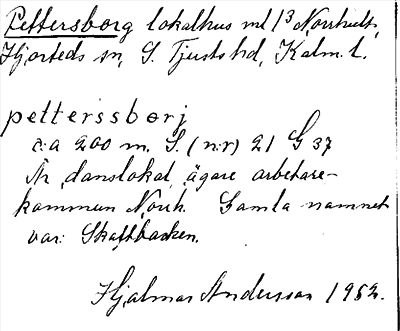 Pettersborg lokalhus ml 1³ Norrhult,
Hjorteds sn, S. Tjusts hd, Kalm. l.
petterssborj
c:a 200 m. S. (nr) 21 G 37
Är danslokal, ägare arbetare-
kommun Norrh. Gamla namnet
var: Skaftbacken.
Hjalmar Andersson 1952.